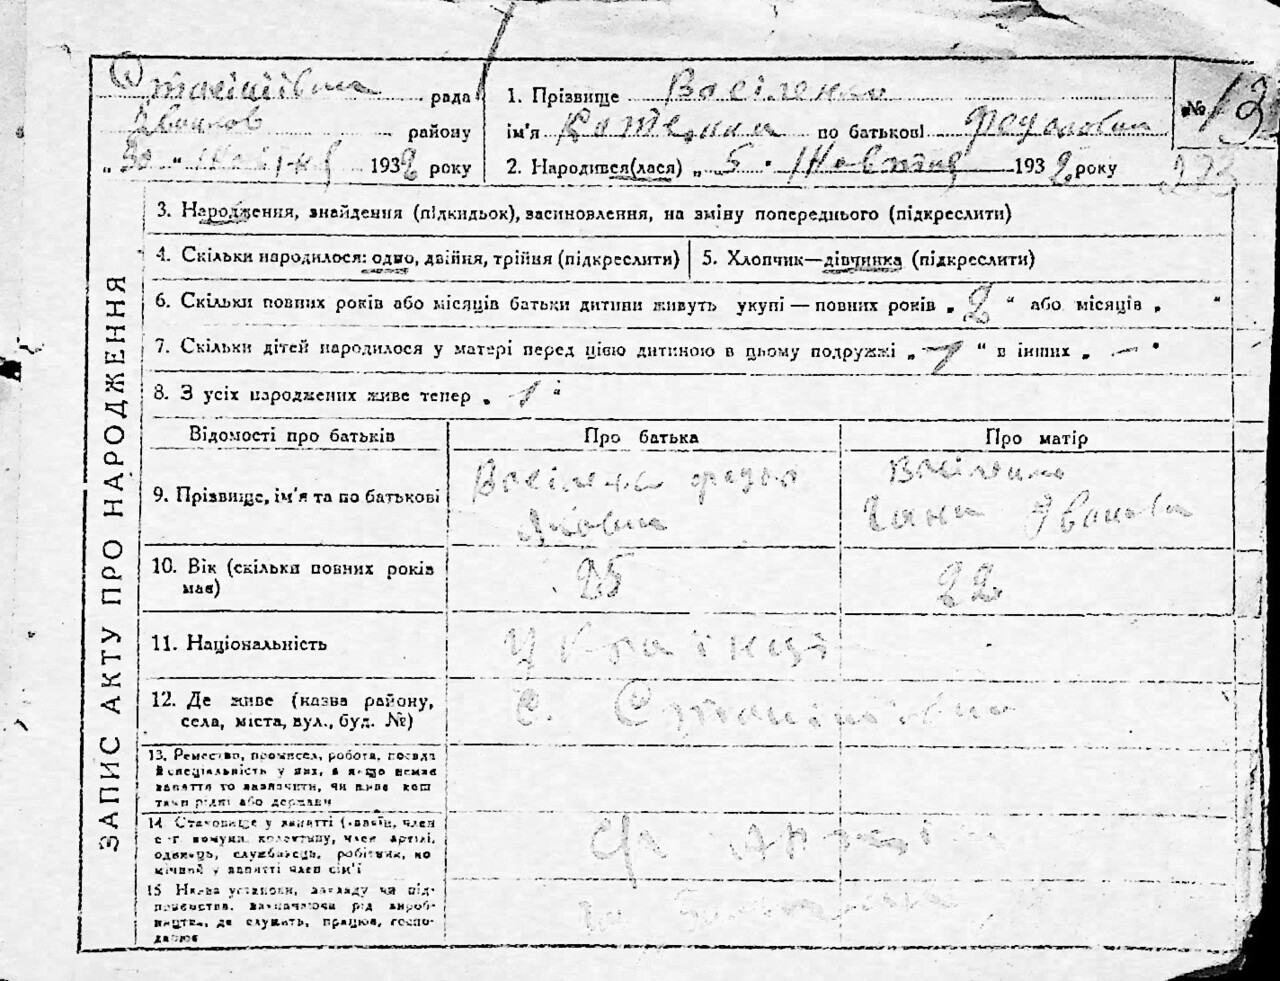 рада
району
1932 року
1. Прізвище Васіленко
ім'я Катерина по батькові
2. Народився(лася) „ 5 " Жовтня 1932 року
№ 13
3. Народження, знайдення (підкидьок), засиновлення, на зміну попереднього (підкреслити)
4. Скільки народилося: одно, двійня, трійня (підкреслити)
5. Хлопчик—дівчинка (підкреслити)
6. Скільки повних років або місяців батьки дитини живуть укупі — повних років „ 2 " або місяців „ "
7. Скільки дітей народилося у матері перед цією дитиною в цьому подружжі „ 1 " в інших „ — "
8. З усіх народжених живе тепер „ 1 "
ЗАПИС АКТУ ПРО НАРОДЖЕННЯ
Відомості про батьків
Про батька
Про матір
9. Прізвище, ім'я та по батькові
Васіленко
Іванова
10. Вік (скільки повних років
має)
25
22
11. Національність
Українці
12. Де живе (назва району,
села, міста, вул., буд. №)
с.
13. Ремество, промисел, робота, посада
й спеціальність у них, а якщо немає
заняття то зазначити, чи живе кош
тами рідні або держави
14. Становище у занятті (хазяїн, член
с-г комуни, колективу, член артілі,
одинець, службовець, робітник, по
мічний у занятті член сім'ї
15. Назва установи, закладу чи під-
приємства, зазначаючи рід вироб-
ництва, де служить, працює, госпо-
дарює